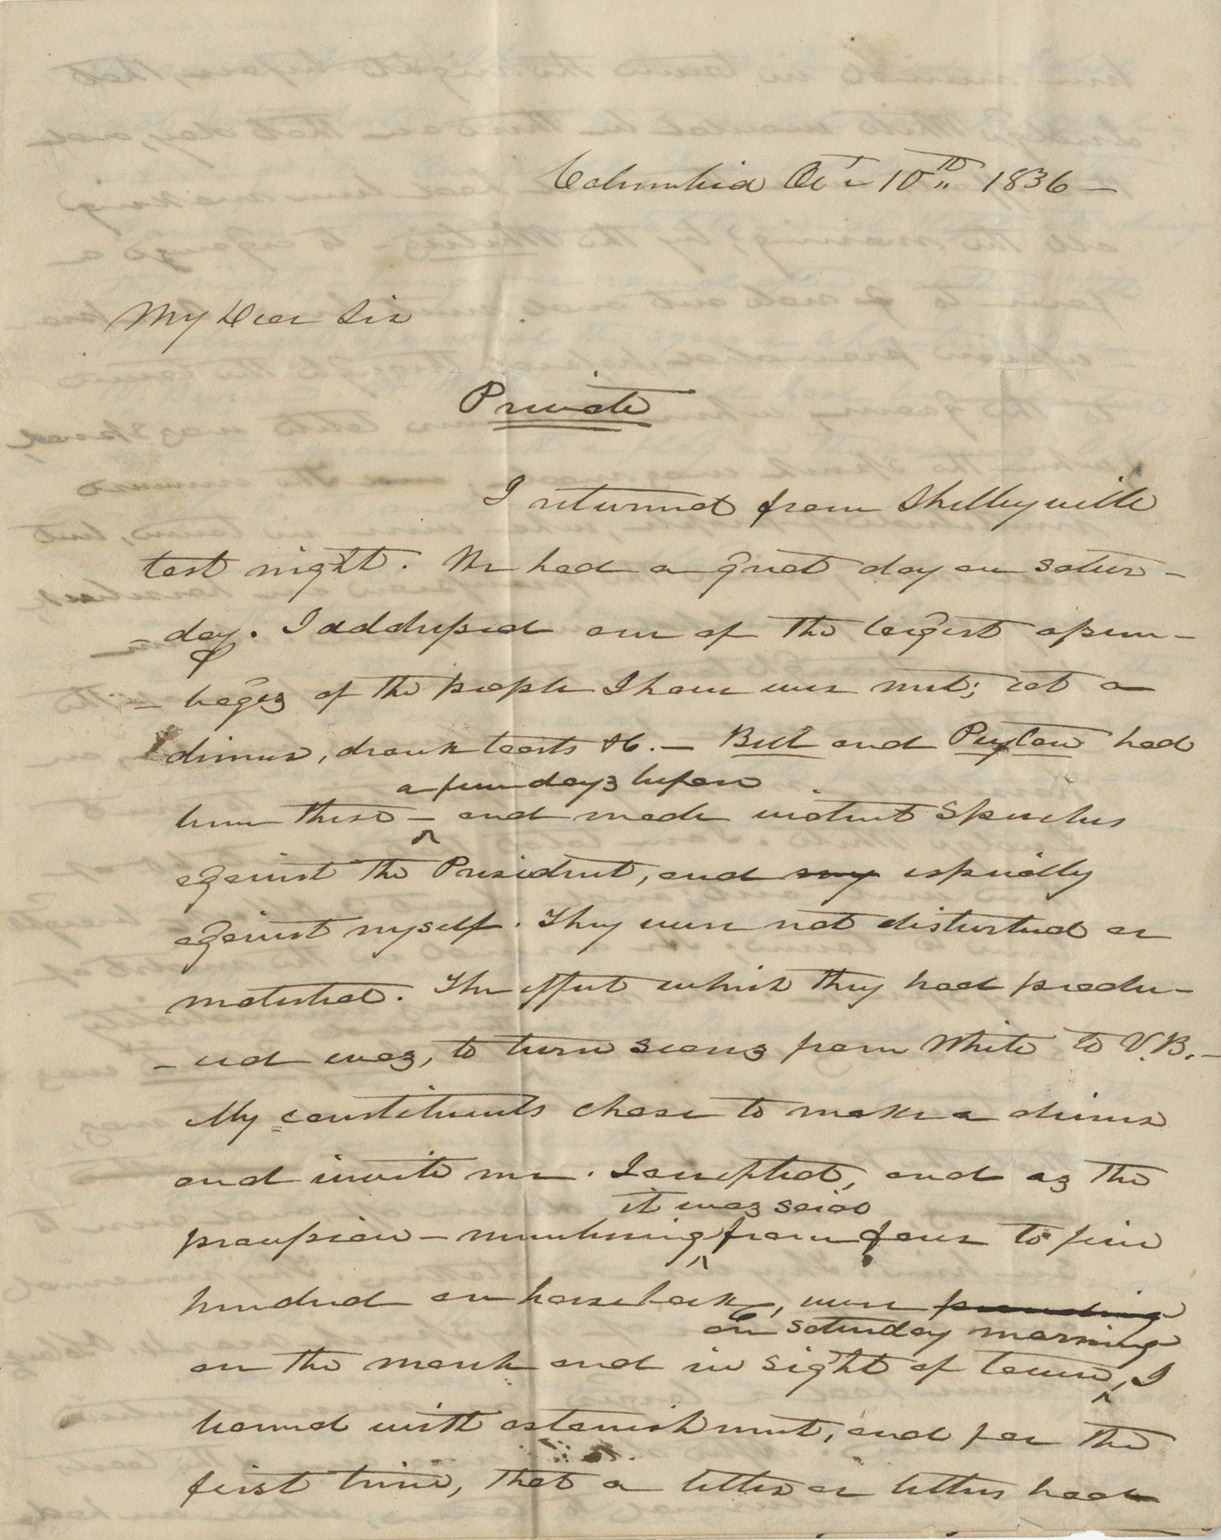 Columbia Oct 10th 1836 —
My Dear Sir
Private
I returned from Shelbyville
last night. We had a great day on Satur-
-day. I addressed one of the largest assem-
-blages of the people I have ever met; eat a
dinner, drank toasts &c. — Bell and Peyton had
a few days before
been there — and made violent speeches
against the President, and my especially
against myself. They were not disturbed or
molested. The effect which they had produ-
-ced was, to turn scores from White to V.B. —
My constituents chose to make a dinner
and invite me. I accepted, and as the
it was said
procession — numbering from four to five
hundred on horseback, were proceeding
on Saturday morning
on the march and in sight of town, I
learned with astonishment, and for the
first time, that a letter or letters had